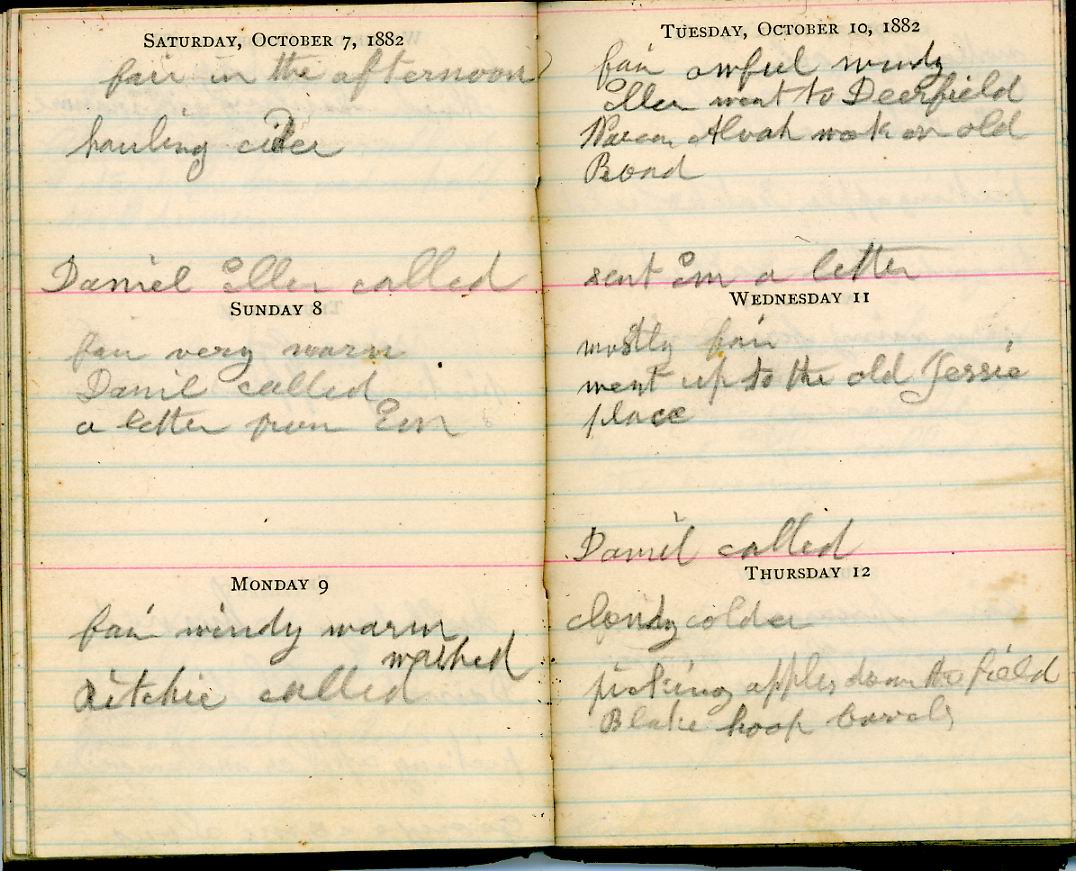 SATURDAY, OCTOBER 7, 1882
fair in the afternoon
hauling cider
Daniel Ellen called
SUNDAY 8
fair very warm
Daniel called
a letter from Em
MONDAY 9
fair windy warm
washed
Ritchie called
TUESDAY, OCTOBER 10, 1882
fair awful windy
Ellen went to Deerfield
Alvah work on old
Road
sent Em a letter
WEDNESDAY 11
mostly fair
went up to the old Jessie
place
Daniel called
THURSDAY 12
cloudy colder
picking apples down the field
Blake hoop barrels